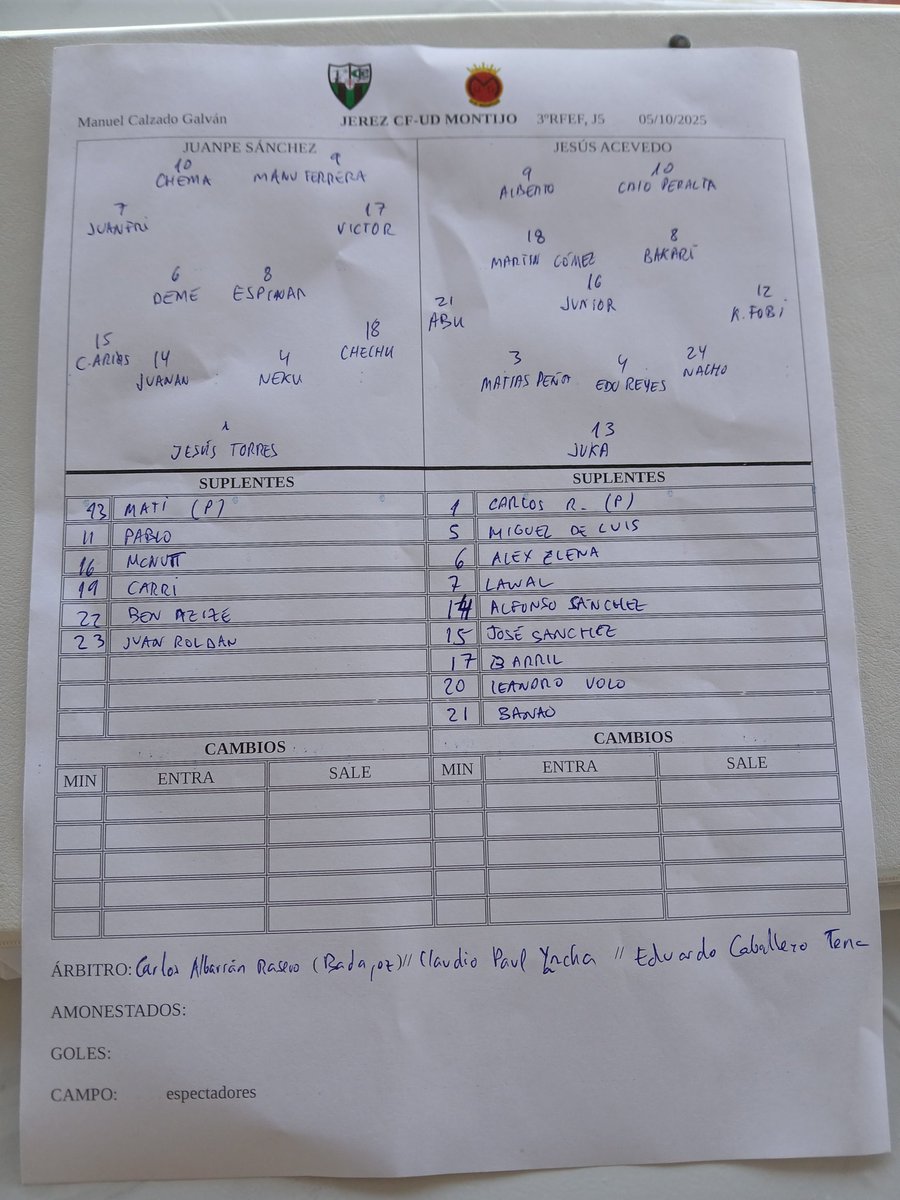 Manuel Calzado Galván JEREZ CF-UD MONTIJO 3ºRFEF, J5 05/10/2025
JUANPE SÁNCHEZ
10 9
CHEMA MANU TERRERA
7 17
JUANFRI VICTOR
6 8
DEME ESPINAR
15 18
C.ARIAS CHECHU
14 4
JUANAN NEKU
1
JESÚS TORRES
JESÚS ACEVEDO
9 10
ALBERTO CAIO PERALTA
18 8
MARTIN GÓMEZ BAKARI
16
JUNIOR
21 12
ABU K.FOBI
3 4 24
MATIAS PEÑA EDU REYES NACHO
13
JUKA
SUPLENTES
13 MATI (P)
11 PABLO
16 MCNUTT
19 CARRI
22 BEN AZIZE
23 JUAN ROLDAN
SUPLENTES
1 CARLOS R. (P)
5 MIGUEL DE LUIS
6 ALEX ELENA
7 LAWAL
14 ALFONSO SÁNCHEZ
15 JOSÉ SANCHEZ
17 BARRIL
20 LEANDRO VOLO
21 BANAO
CAMBIOS
MIN ENTRA SALE
CAMBIOS
MIN ENTRA SALE
ÁRBITRO: Carlos Albarrán Rasero (Badajoz) // Claudio Paul // Eduardo Caballero Tena
AMONESTADOS:
GOLES:
CAMPO: espectadores